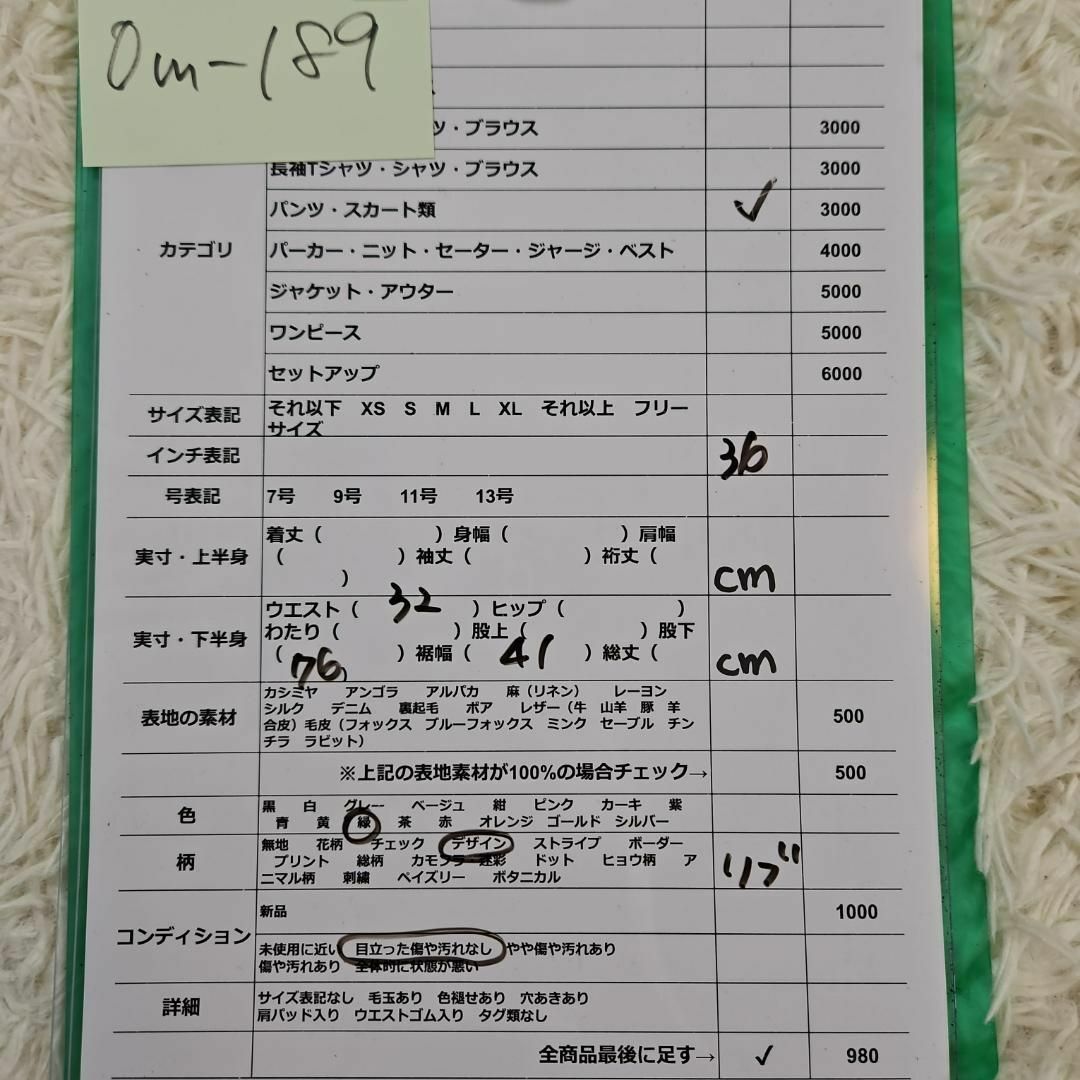 Om-189
ツ・ブラウス 3000
長袖Tシャツ・シャツ・ブラウス 3000
パンツ・スカート類 ✓ 3000
カテゴリ パーカー・ニット・セーター・ジャージ・ベスト 4000
ジャケット・アウター 5000
ワンピース 5000
セットアップ 6000
サイズ表記 それ以下 XS S M L XL それ以上 フリー
サイズ
インチ表記 36
号表記 7号 9号 11号 13号
着丈（ ）身幅（ ）肩幅
実寸・上半身 （ ）袖丈（ ）裄丈（
） cm
ウエスト（ 32 ）ヒップ（ ）
実寸・下半身 わたり（ ）股上（ ）股下
（ 76 ）裾幅（ 41 ）総丈（ cm
カシミヤ アンゴラ アルパカ 麻（リネン） レーヨン
表地の素材 シルク デニム 裏起毛 ボア レザー（牛 山羊 豚 羊 500
合皮）毛皮（フォックス ブルーフォックス ミンク セーブル チン
チラ ラビット）
※上記の表地素材が100%の場合チェック→ 500
色 黒 白 グレー ベージュ 紺 ピンク カーキ 紫
青 黄 緑 茶 赤 オレンジ ゴールド シルバー
無地 花柄 チェック デザイン ストライプ ボーダー
柄 プリント 総柄 カモフラ 迷彩 ドット ヒョウ柄 ア リブ
ニマル柄 刺繍 ペイズリー ボタニカル
新品 1000
コンディション
未使用に近い 目立った傷や汚れなし やや傷や汚れあり
傷や汚れあり 全体的に状態が悪い
詳細 サイズ表記なし 毛玉あり 色褪せあり 穴あきあり
肩パッド入り ウエストゴム入り タグ類なし
全商品最後に足す→ ✓ 980